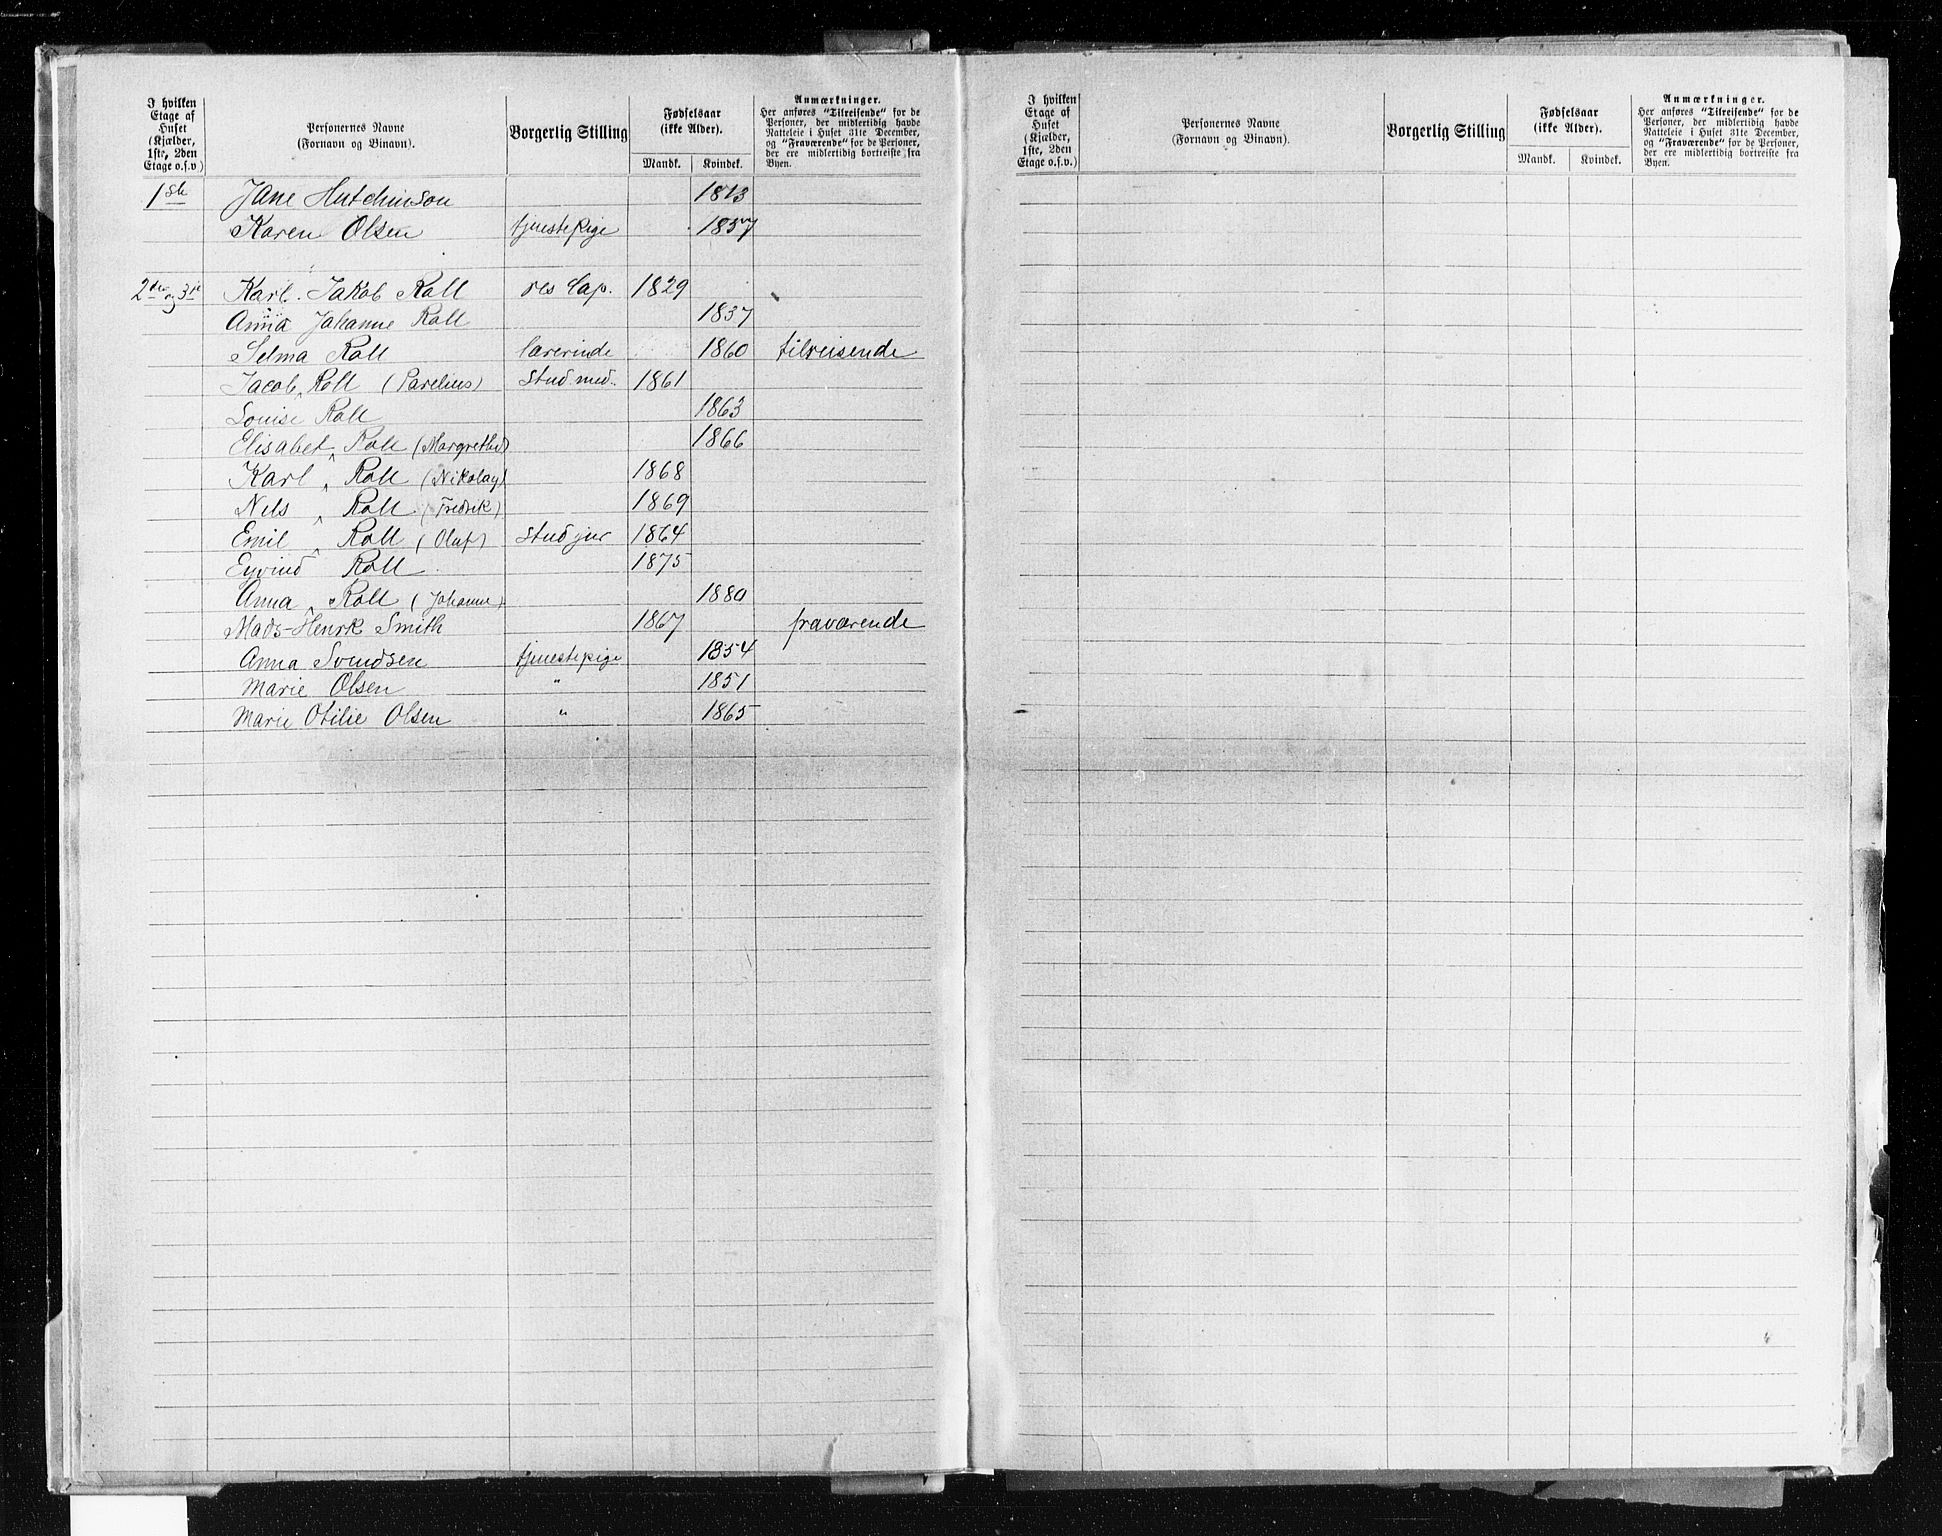 I hvilken Etage af Huset (Kjælder, 1ste, 2den Etage o.s.v.) Personernes Navne (Fornavn og Binavn). Borgerlig Stilling Fødselsaar (ikke Alder). Mandk. Kvindek. Anmærkninger. Her anføres "Tilreisende" for de Personer, der midlertidig havde Natteleie i Huset 31te December, og "Fraværende" for de Personer, der ere midlertidig bortreiste fra Byen.
1ste Jane Hutchinson 1813
Karen Olsen tjenestepige 1857
2den og 3die Karl Jakob Roll res Cap. 1829
Anna Johanne Roll 1837
Selma Roll Lærerinde 1860 tilreisende
Jacob Roll (Parelius) Stud. med. 1861
Louise Roll 1863
Elisabet Roll (Margrethe) 1866
Karl Roll (Nikolay) 1868
Nils Roll (Fredrik) 1869
Emil Roll (Olaf) stud jur 1864
Eyvind Roll 1875
Anna Roll (Johanne) 1880
Mads-Henrk Smith 1867 fraværende
Anna Svendsen tjenestepige 1854
Marie Olsen " 1851
Marie Otilie Olsen " 1865
I hvilken Etage af Huset (Kjælder, 1ste, 2den Etage o.s.v.) Personernes Navne (Fornavn og Binavn). Borgerlig Stilling Fødselsaar (ikke Alder). Mandk. Kvindek. Anmærkninger. Her anføres "Tilreisende" for de Personer, der midlertidig havde Natteleie i Huset 31te December, og "Fraværende" for de Personer, der ere midlertidig bortreiste fra Byen.